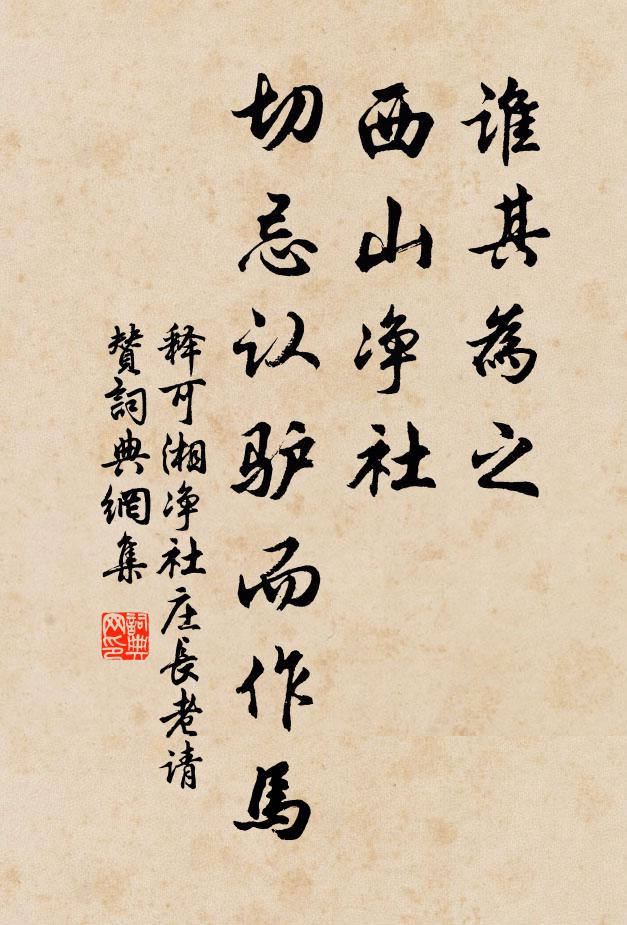 谁其為之
西山净社
切忌认驴而作馬
释可湘净社庄長老请
赞詞典網集
詞典网印